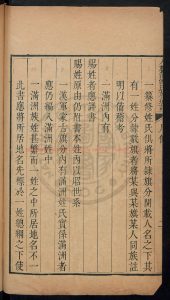 一纂修姓氏俱將所隸旗分開載人名之下其
有一姓分隸數旗者將某與某旗某人同族註
明以備稽考
一滿洲內有
賜姓者應詳書
賜姓原由仍附書本姓內以昭世系
一漢軍蒙古旗分內有滿洲姓氏實係滿洲者
應仍編入滿洲姓中
一滿洲族姓甚繁而一姓之中所居地名不一
此書應將所居地名先標於一姓總綱之下使
凡例